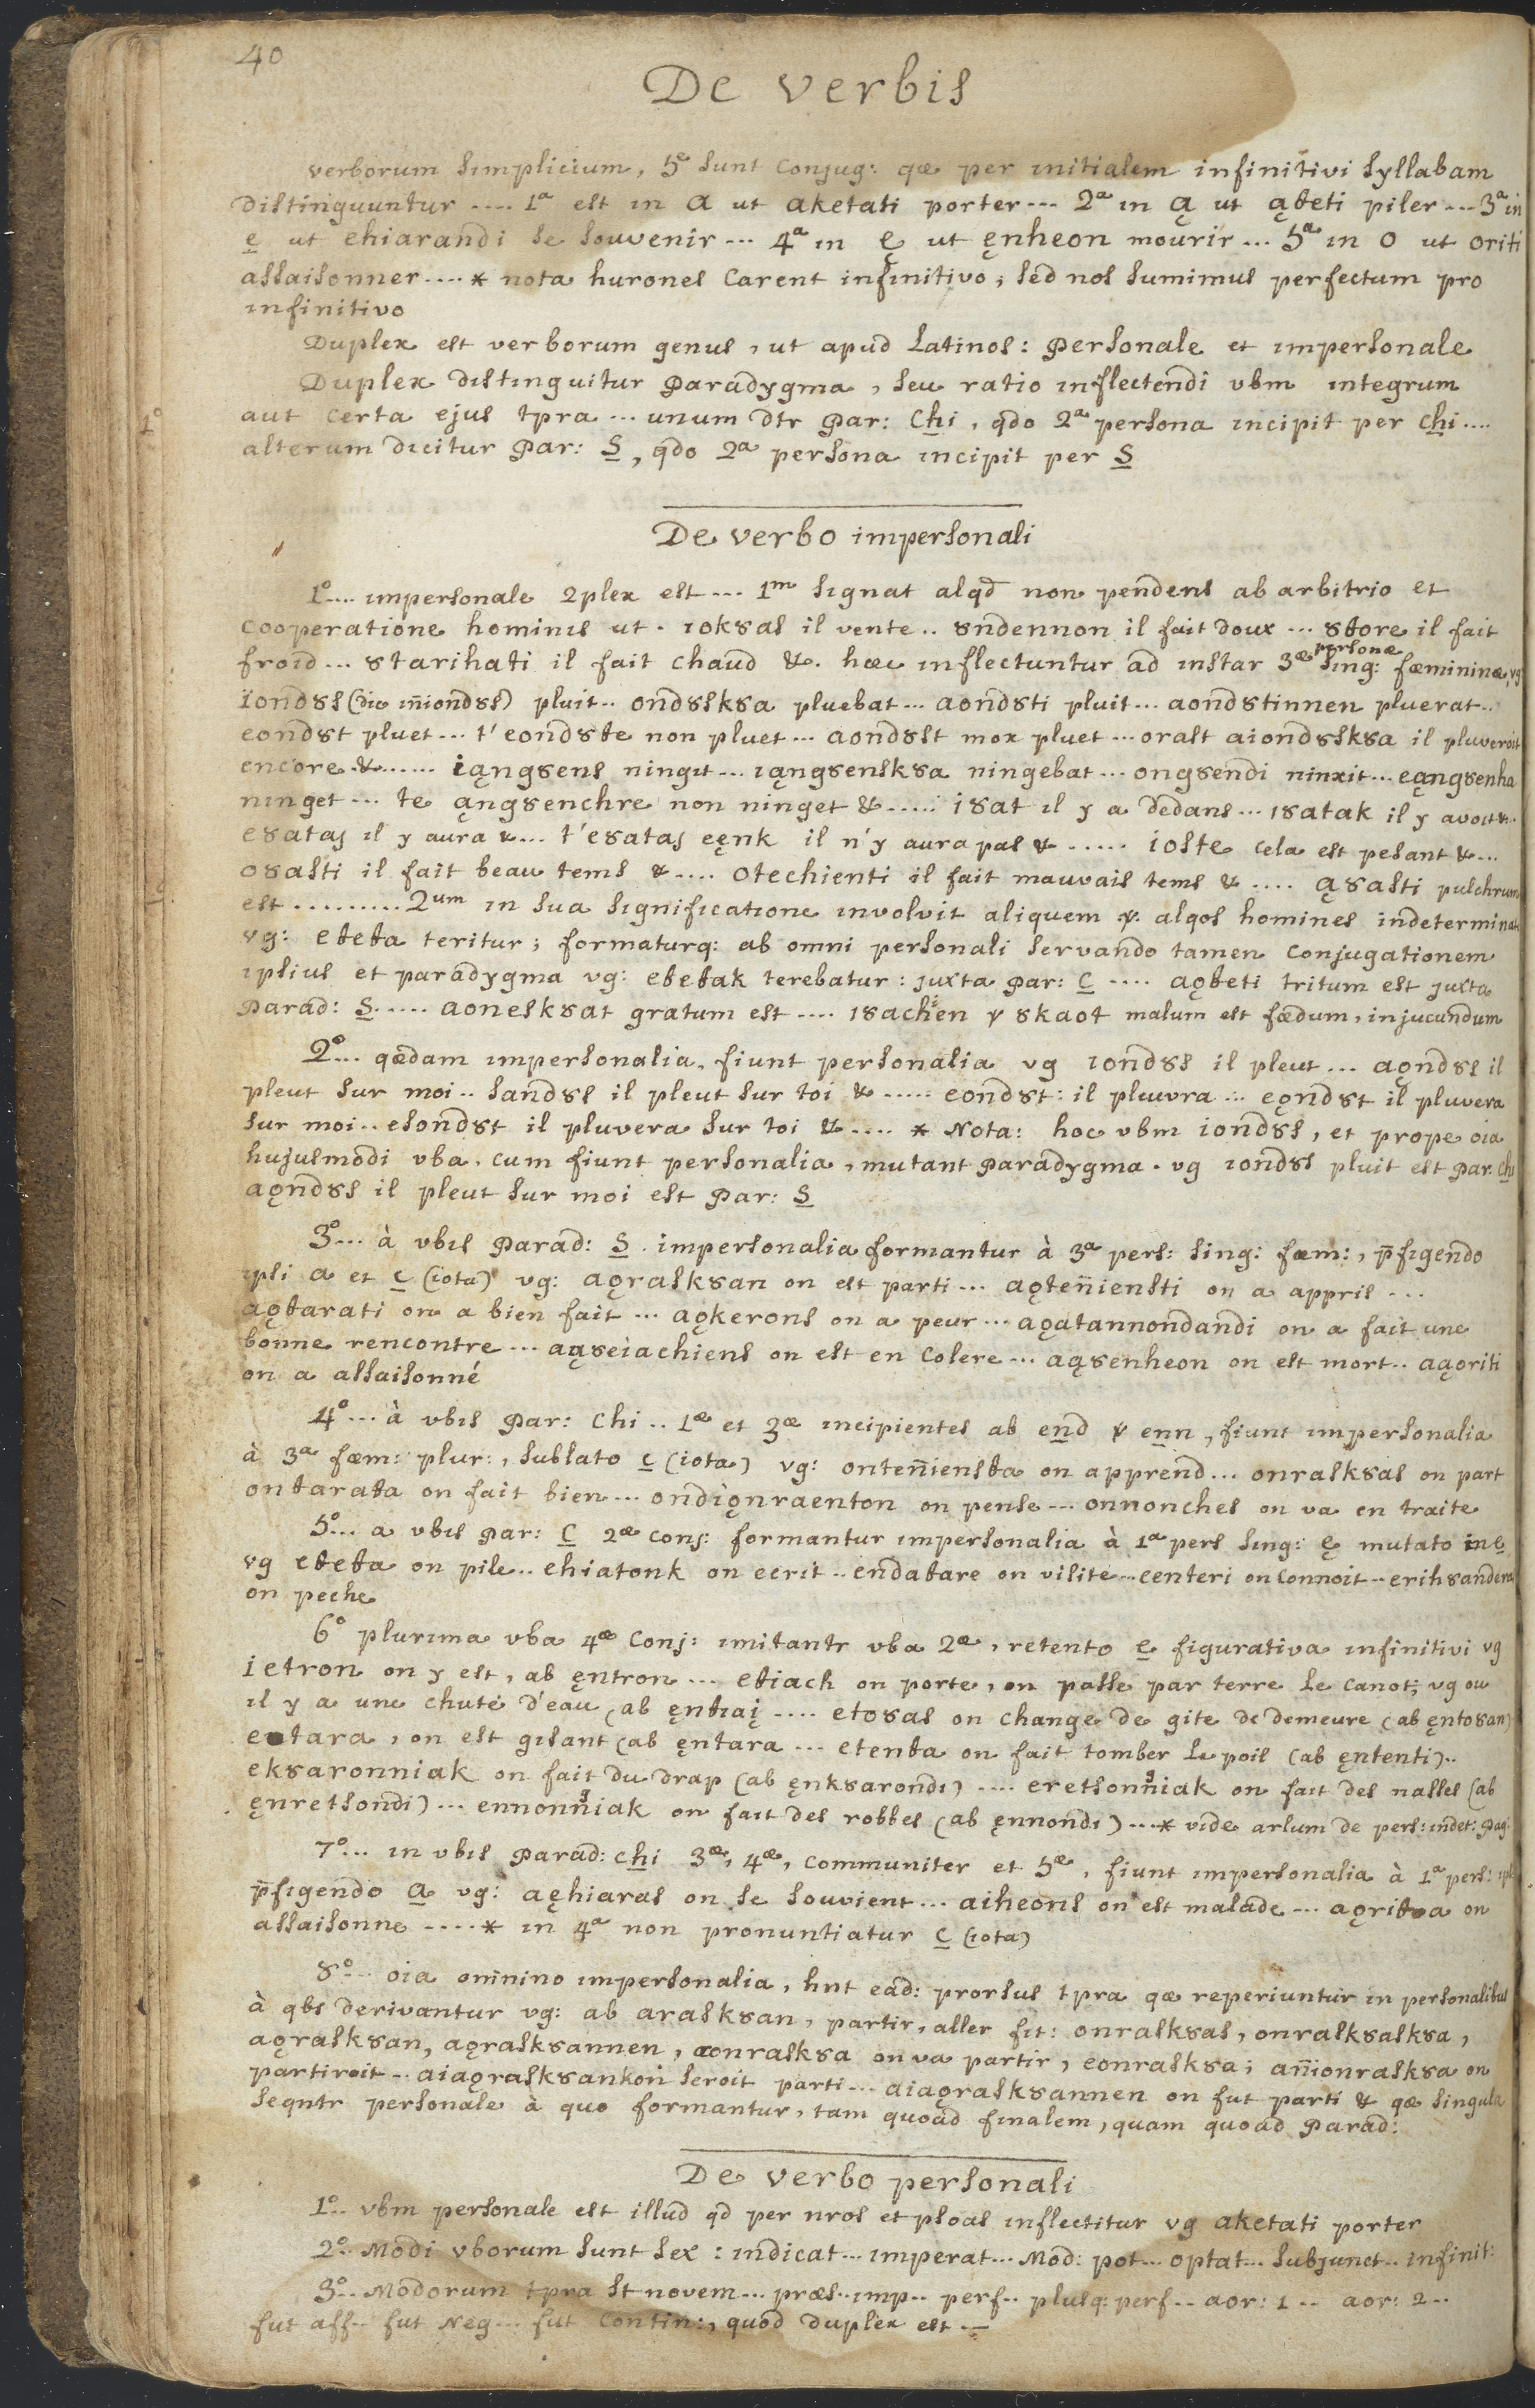 40
De verbis
verborum simplicium, 5æ sunt conjug: qæ per initialem infinitivi syllabam
distinguuntur .... 1ª est in a ut aketati porter... 2ª in ą ut ąteti piler ... 3ª in
e ut ehiarandi se souvenir ... 4ª in ę ut ęnheon mourir ... 5ª in o ut oriti
assaisonner .... * nota hurones carent infinitivo, sed nos sumimus perfectum pro
infinitivo
Duplex est verborum genus, ut apud Latinos: personale et impersonale
Duplex distinguitur Paradygma, seu ratio inflectendi vbm integrum
1° aut certa ejus tpra ... unum dtr Par: chi, qdo 2ª persona incipit per chi ....
alterum dicitur Par: S, qdo 2ª persona incipit per S
De verbo impersonali
1°.... impersonale 2plex est ... 1m signat alqd non pendens ab arbitrio et
cooperatione hominis ut . iok8as il vente .. 8ndennon il fait doux ... 8tore il fait
froid ... 8tarihati il fait chaud &. hæc inflectuntur ad instar 3æ personæ sing: fæmininæ, vg
ïond8s (dic ïn̄iond8s) pluit .. ond8sk8a pluebat ... aond8ti pluit ... aond8tinnen pluerat ..
eond8t pluet ... t'eond8te non pluet ... aond8st mox pluet ... orast aiond8sk8a il pluveroit
encore &...... iąng8ens ningit ... iąng8ensk8a ningebat ... ong8endi ninxit ... eąng8enha
ninget ... te ąng8enchre non ninget &..... i8at il y a dedans ... i8atak il y avoit &..
e8ataj il y aura &... t'e8ataj eęnk il n'y aura pas &...... ioste cela est pesant &...
o8asti il fait beau tems &.... otechienti il fait mauvais tems &.... ą8asti pulchrum
est ......... 2um in sua significatione involvit aliquem v. alqos homines indeterminat
vg: eteta teritur; formaturq: ab omni personali servando tamen conjugationem
ipsius et paradygma vg: etetak terebatur: juxta Par: C .... aǫteti tritum est juxta
Parad: S ..... aonesk8at gratum est .... i8achen v 8kaot malum est fœdum, injucundum
2°... qædam impersonalia, fiunt personalia vg iond8s il pleut ... aǫnd8s il
pleut sur moi .. sand8s il pleut sur toi &..... eond8t: il pluvra ... eǫnd8t il pluvera
sur moi .. esond8t il pluvera sur toi &.... * Nota: hoc vbm iond8s, et prope oia
hujusmodi vba, cum fiunt personalia, mutant Paradygma. vg iond8s pluit est Par: chi
aǫnd8s il pleut sur moi est Par: S
3°... à vbis Parad: S . impersonalia formantur à 3ª pers: sing: fæm:, p̄figendo
ipsi a et c (iota) vg: aǫrask8an on est parti ... aǫten̄iensti on a appris ...
aǫtarati on a bien fait ... aǫkerons on a peur ... aǫatannondandi on a fait une
bonne rencontre ... aą8eiachiens on est en colere ... aą8enheon on est mort .. aąoriti
on a assaisonné
4°... à vbis Par: chi .. 1æ et 3æ incipientes ab end v enn, fiunt impersonalia
à 3ª fæm: plur:, sublato c (iota) vg: onten̄iensta on apprend ... onrask8as on part
ontarata on fait bien ... ondiǫnraenton on pense ... onnonches on va en traite
5°... a vbis Par: C 2æ conj: formantur impersonalia à 1ª pers sing: ę mutato in e
vg eteta on pile .. ehiatonk on ecrit .. endatare on visite .. eenteri on connoit .. erih8andera
on peche
6° plurima vba 4æ conj: imitantr vba 2æ, retento e figurativa infinitivi vg
ietron on y est, ab ęntron ... etiach on porte, on passe par terre le canot; vg ou
il y a une chute d'eau (ab ęntiaį .... eto8as on change de gite de demeure (ab ęnto8an)
entara, on est gisant (ab ęntara ... etenta on fait tomber le poil (ab ęntenti) ..
ek8aronniak on fait du drap (ab ęnk8arondi) .... eretsonniak on fait des nasses (ab
ęnretsondi) ... ennonniak on fait des robbes (ab ęnnondi) ... * vide arlum de pers: indet: Pag:
7°... in vbis Parad: chi 3æ, 4æ, communiter et 5æ, fiunt impersonalia à 1ª pers:
p̄figendo a vg: aęhiaras on se souvient ... aiheons on est malade ... aǫrita on
assaisonne .... * in 4ª non pronuntiatur c (iota)
8°... oia omnino impersonalia, hnt ead: prorsus tpra qæ reperiuntur in personalibus
à qbs derivantur vg: ab arask8an, partir, aller fit: onrask8as, onrask8ask8a,
aǫrask8an, aǫrask8annen, aonrask8a on va partir, eonrask8a; an̄ionrask8a on
partiroit .. aiaǫrask8ankon seroit parti ... aiaǫrask8annen on fut parti & qæ singula
seqntr personale à quo formantur, tam quoad finalem, quam quoad Parad:
De verbo personali
1°.. vbm personale est illud qd per nros et psoas inflectitur vg aketati porter
2°.. Modi vborum sunt sex: indicat ... imperat ... Mod: pot ... optat ... subjunct .. infinit:
3°.. Modorum tpra st novem ... præs .. imp .. perf .. plusq: perf .. aor: 1 .. aor: 2 ..
fut aff .. fut Neg ... fut contin:, quod duplex est —